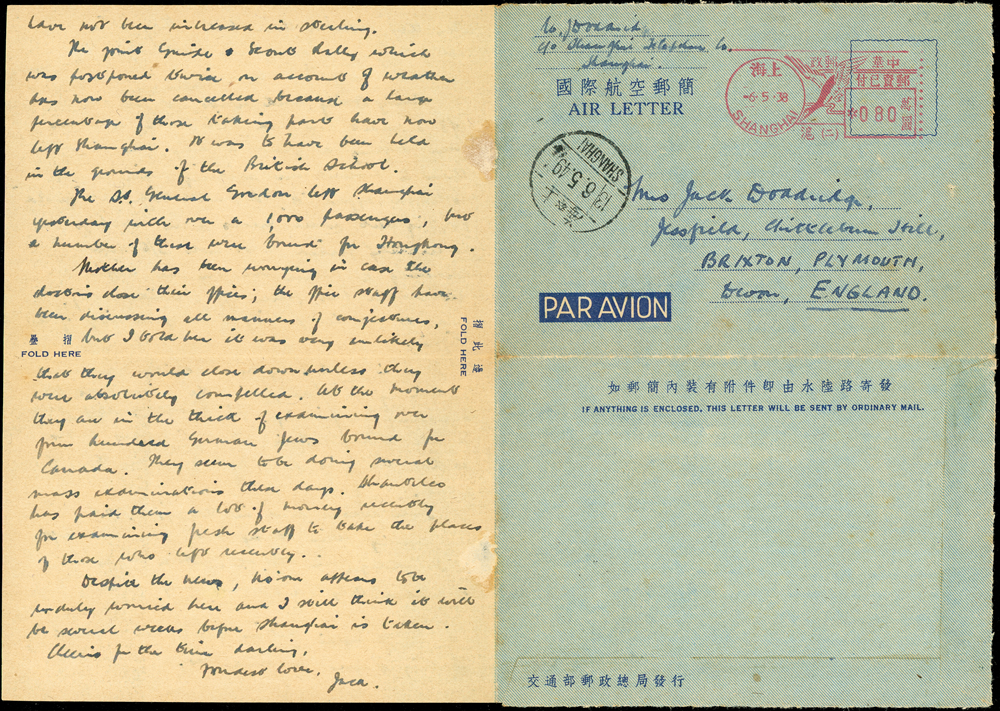 have not been increased in sterling.
The joint Guide & Scout Rally which
was postponed twice on account of weather
has now been cancelled because a large
percentage of those taking part have now
left Shanghai. It was to have been held
in the grounds of the British School.
The General Gordon left Shanghai
yesterday with over a 1,000 passengers, but
a number of these were bound for Hongkong.
Mother has been worrying in case the
doctors close their offices; the office staff have
been discussing all manners of conjectures,
but I told her it was very unlikely
that they would close down unless they
were absolutely compelled. At the moment
they are in the thick of examining over
four hundred German Jews bound for
Canada. They seem to be doing several
mass examinations these days.
has paid them a lot of money recently
for examining fresh staff to take the places
of those who left recently.
Despite the news, no one appears to be
unduly worried here and I still think it will
be several weeks before Shanghai is taken.
Cheerio for the time darling,
Fondest love,
Jack.
摺疊
FOLD HERE
摺此邊
FOLD HERE
J Doddridge
c/o Shanghai Telephone Co.
Shanghai.
國際航空郵簡
AIR LETTER
上海
-6.5.38
SHANGHAI
郵政
滬(二)
中華
郵資已付
080
萬圓
SHANGHAI
13
6.5.49
上海
Mrs Jack Doddridge,
Jessfield, Chittleburn Hill,
BRIXTON, PLYMOUTH,
Devon, ENGLAND.
PAR AVION
如郵簡內裝有附件即由水陸路寄發
IF ANYTHING IS ENCLOSED, THIS LETTER WILL BE SENT BY ORDINARY MAIL.
交通部郵政總局發行